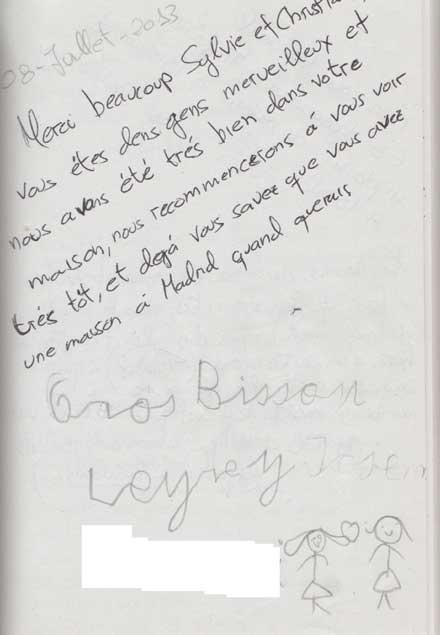 08-Juillet-2013
Merci beaucoup Sylvie et Christia
vous êtes dens gens merveilleux et
nous avons été trés bien dans votre
maison, nous recommencerons á vous voir
trés tôt, et dejá vous savez que vous avez
une maison á Madrid quand querais
Gros Bisson
Leyrey Jose